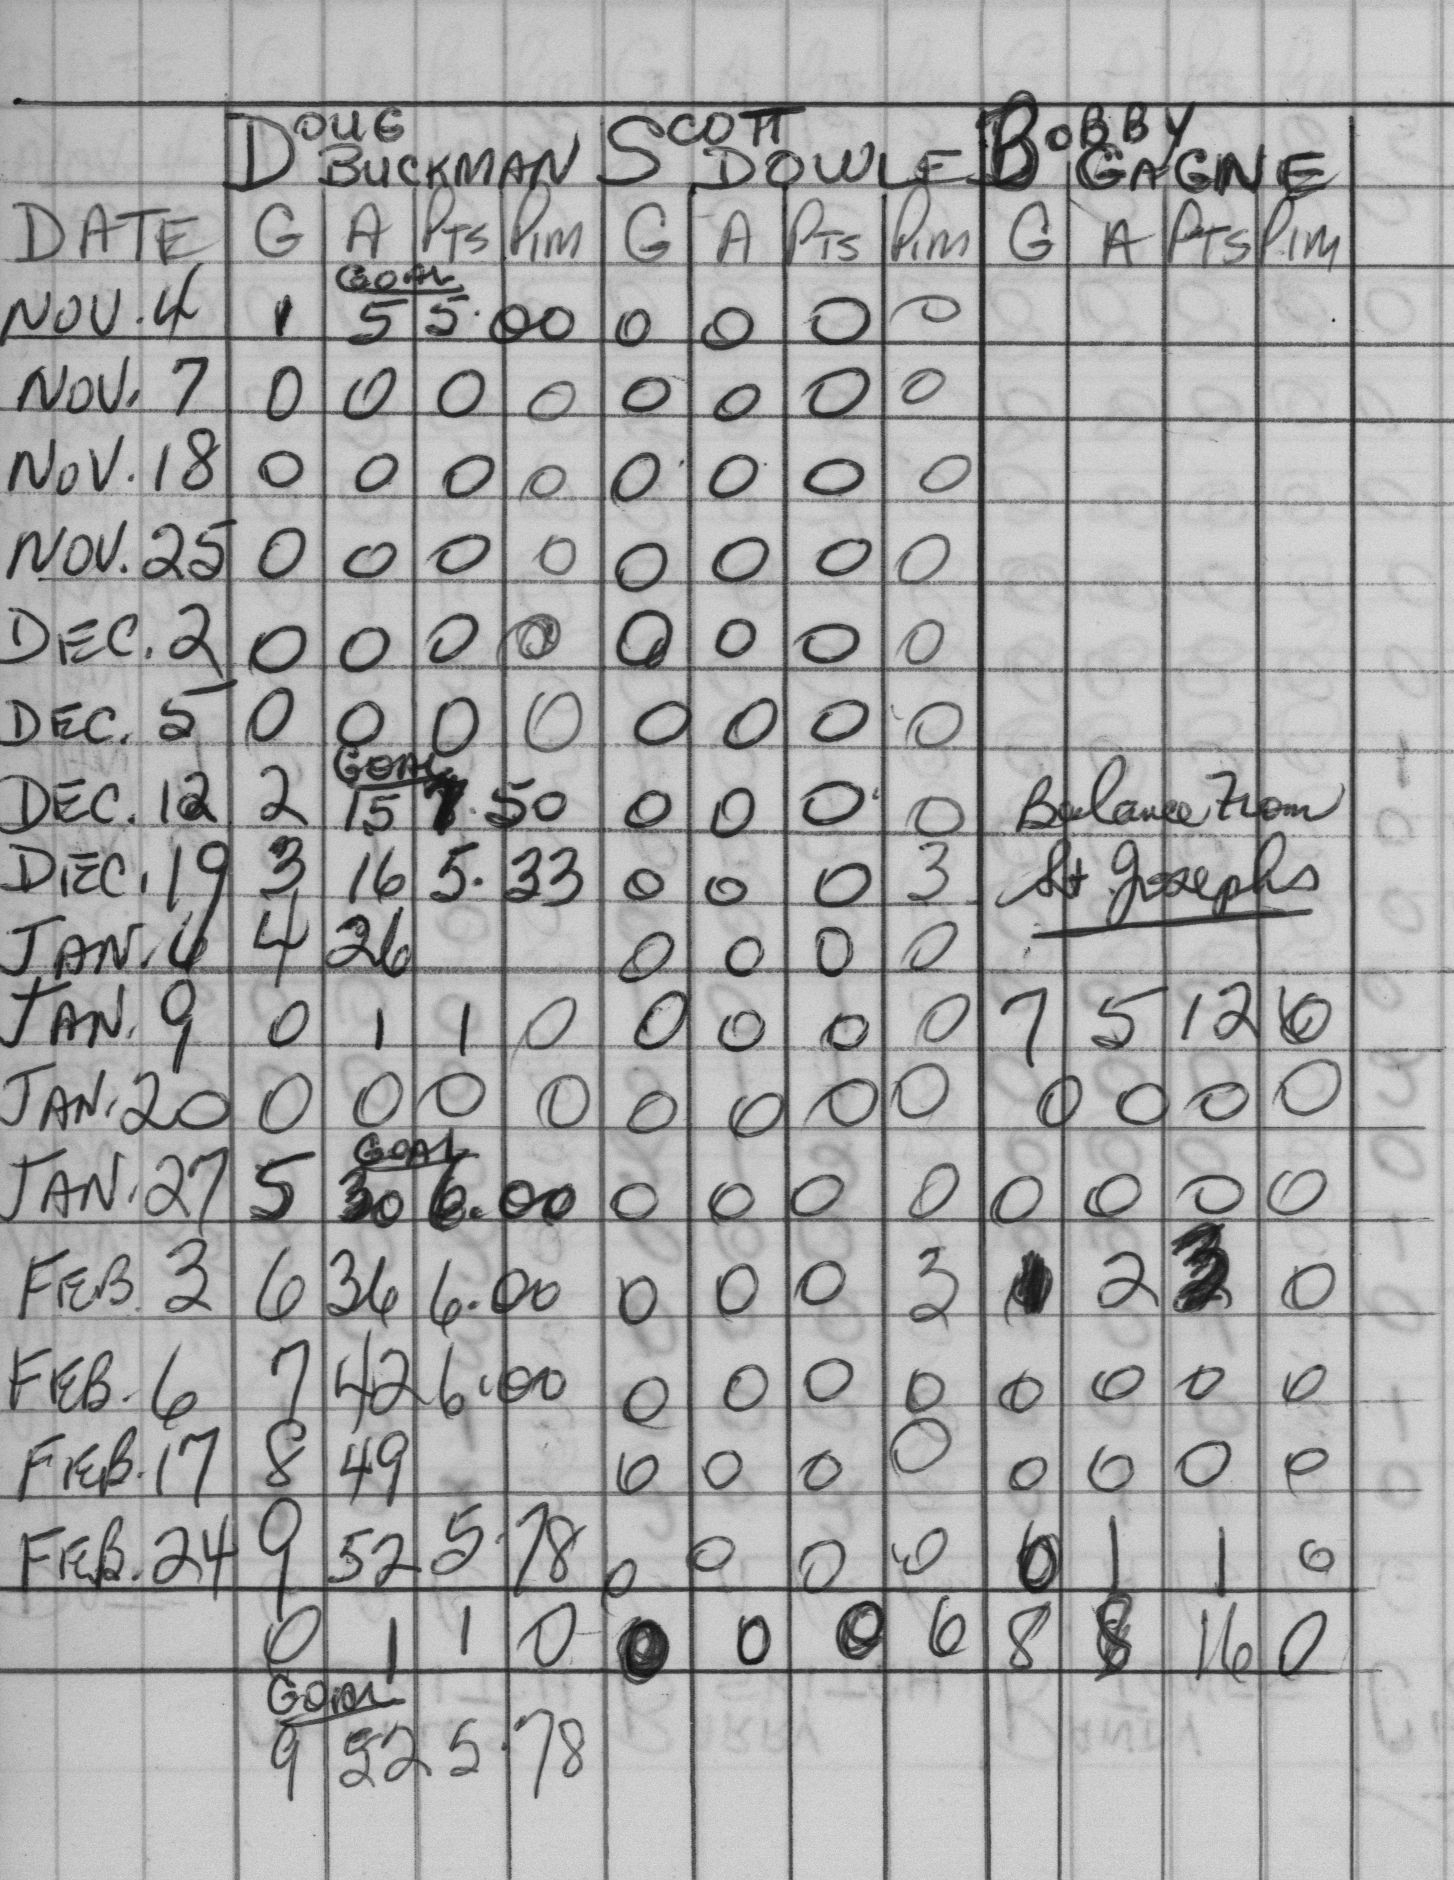 DOUG BUCKMAN SCOTT DOWLE BOBBY GAGNE
DATE G A PTS PIM G A PTS PIM G A PTS PIM
GOAL
NOV. 4 1 5 5.00 0 0 0 0
NOV. 7 0 0 0 0 0 0 0 0
NOV. 18 0 0 0 0 0 0 0 0
NOV. 25 0 0 0 0 0 0 0 0
DEC. 2 0 0 0 0 0 0 0 0
DEC. 5 0 0 0 0 0 0 0 0
GOAL
DEC. 12 2 15 7.50 0 0 0 0 Balance From
DEC. 19 3 16 5.33 0 0 0 3 St Josephs
JAN. 4 26 0 0 0 0
JAN. 9 0 1 1 0 0 0 0 0 7 5 12 0
JAN. 20 0 0 0 0 0 0 0 0 0 0 0 0
GOAL
JAN. 27 5 30 6.00 0 0 0 0 0 0 0 0
FEB. 3 6 36 6.00 0 0 0 3 1 2 3 0
FEB. 6 7 42 6.00 0 0 0 0 0 0 0 0
FEB. 17 8 49 0 0 0 0 0 0 0 0
FEB. 24 9 52 5.78 0 0 0 0 0 1 1 0
0 1 1 0 0 0 0 6 8 8 16 0
GOAL
9 52 5.78